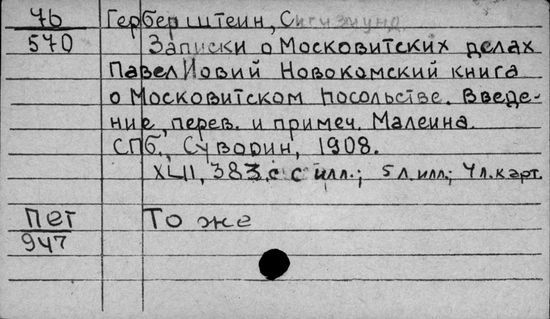 46 Герберштеин, Сигизмунд
570 Записки о Московитских делах
Павел Иовий Новокомский книга
о Московитском посольстве. Введе-
ние, перев. и примеч. Малеина.
СПб., Суворин, 1908.
XLII, 383 с. с илл.; 5 л. илл.; 4 л. карт.
Пет То же
947